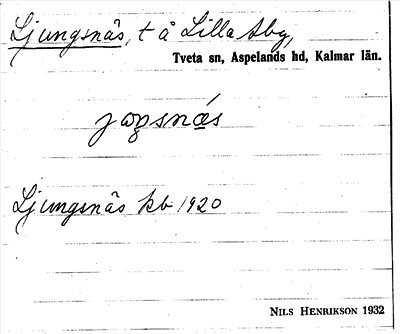 Ljungsnäs, t å Lilla Aby,
Tveta sn, Aspelands hd, Kalmar län.
Ljungsnäs kb 1920
NILS HENRIKSON 1932